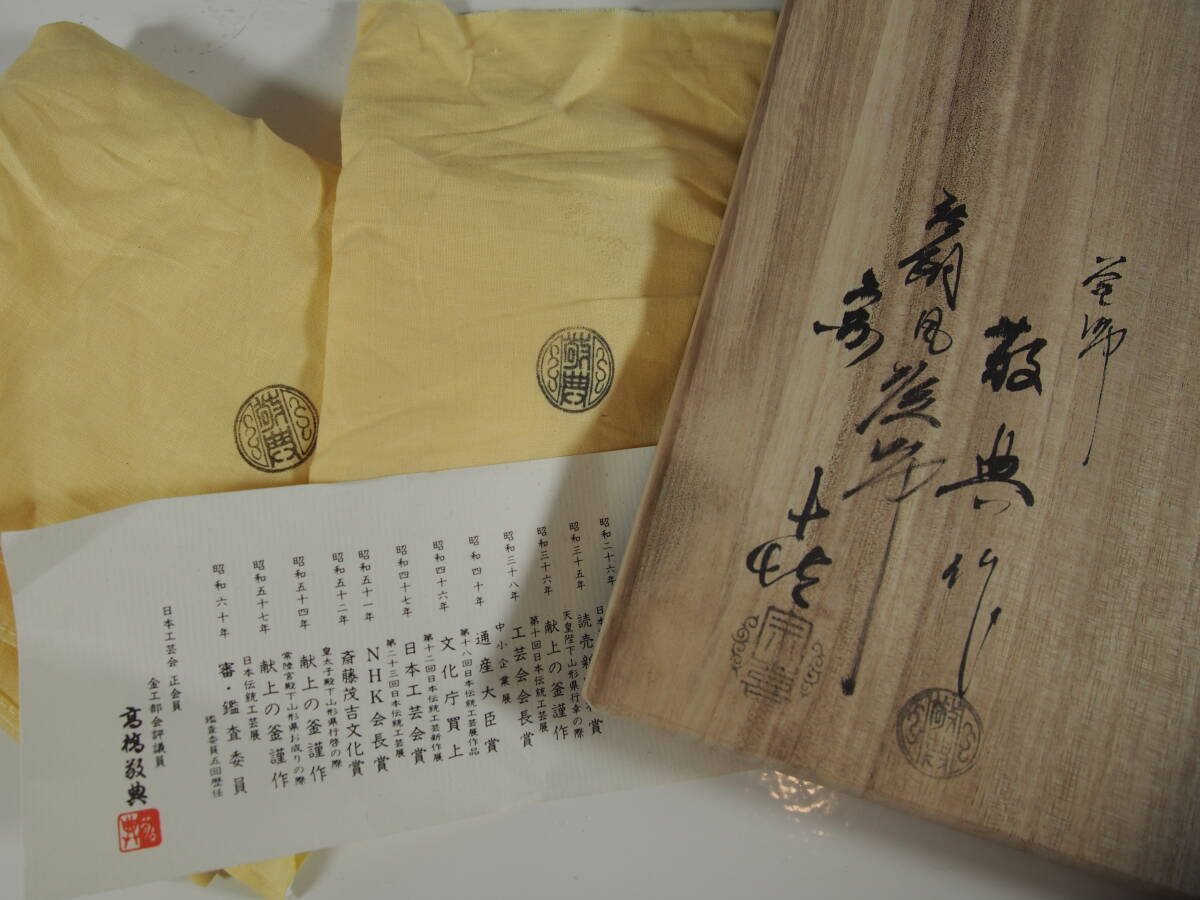 釜師
敬典作
敬典
敬典
昭和二十六年
昭和三十五年 読売新
天皇陛下山形県行幸の際
昭和三十六年 献上の釜謹作
第十回日本伝統工芸展
昭和三十八年 工芸会会長賞
中小企業展
昭和四十年 通産大臣賞
第十八回日本伝統工芸展作品
昭和四十六年 文化庁買上
第十二回日本伝統工芸新作展
昭和四十七年 日本工芸会賞
第二十三回日本伝統工芸展
昭和五十一年 NHK会長賞
昭和五十二年 斎藤茂吉文化賞
皇太子殿下山形県行啓の際
昭和五十四年 献上の釜謹作
常陸宮殿下山形県お成りの際
昭和五十七年 献上の釜謹作
日本伝統工芸展
昭和六十年 審・鑑査委員
鑑査委員五回歴任
日本工芸会 正会員
金工部会評議員
高橋敬典